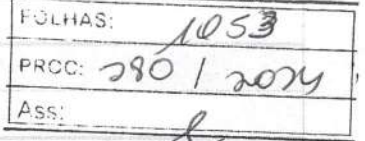 FOLHAS: 1053
PROC: 280 / 2024
Ass: